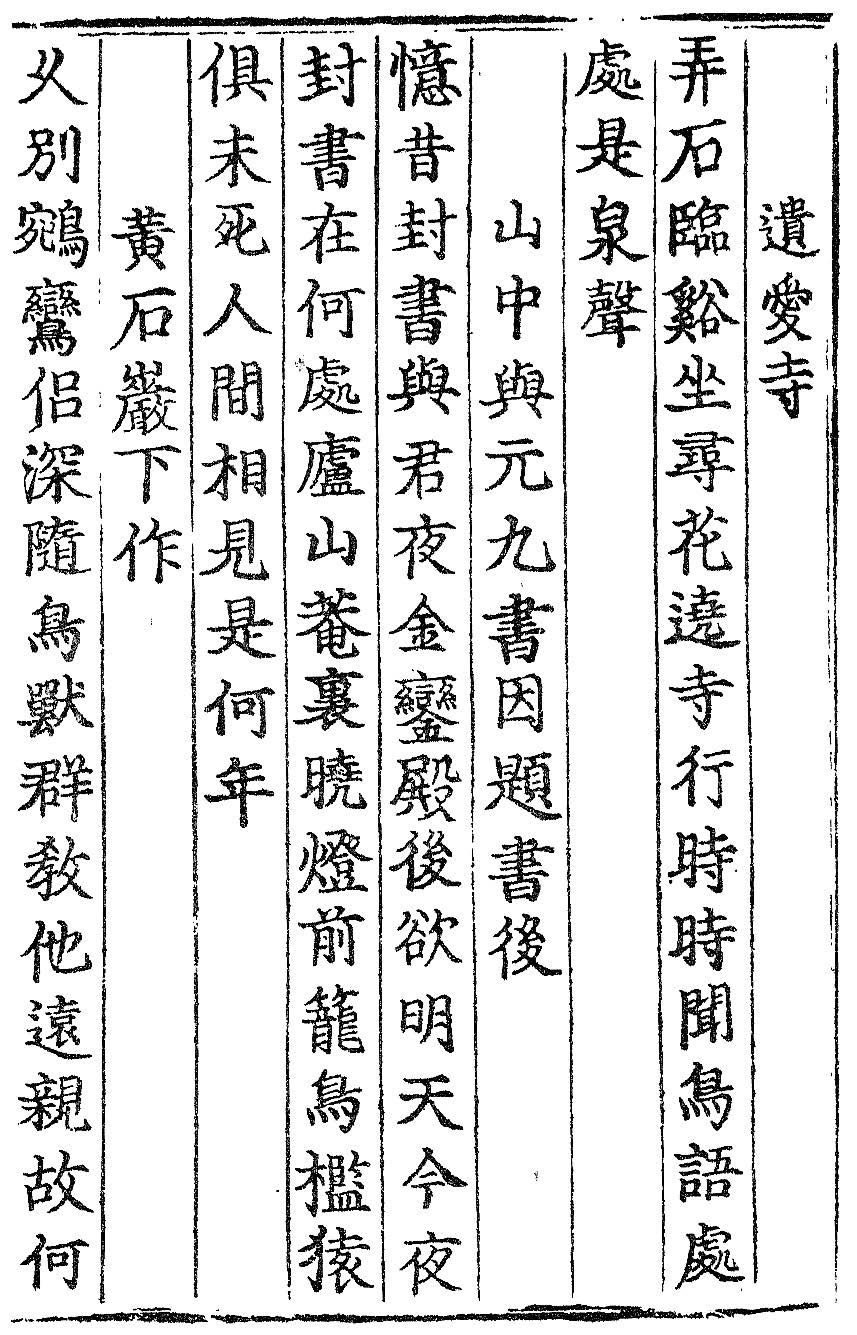 遺愛寺
弄石臨谿坐尋花遶寺行時時聞鳥語處
處是泉聲
山中與元九書因題書後
憶昔封書與君夜金鑾殿後欲明天今夜
封書在何處廬山菴裏曉燈前籠鳥檻猿
俱未死人間相見是何年
黃石巖下作
乆別鵷鸞侶深隨鳥獸群教他遠親故何